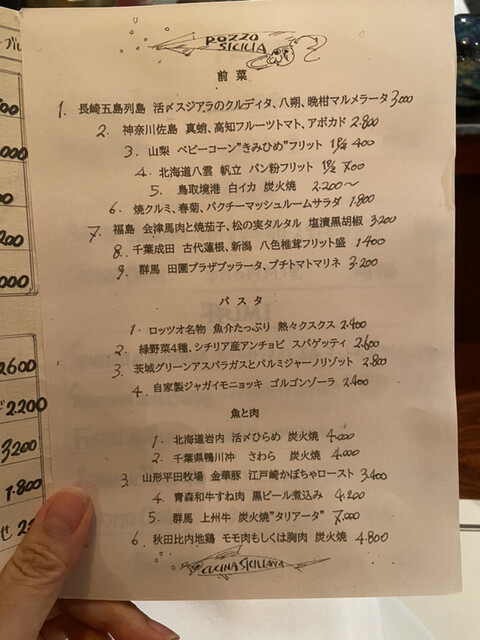 ROZZO
SICILIA
前菜
1. 長崎五島列島 活〆スジアラのクルディタ、八朔、晩柑マルメラータ 3.000
2. 神奈川佐島 真蛸、高知フルーツトマト、アボカド 2.800
3. 山梨 ベビーコーン"きみひめ"フリット 1P 400
4. 北海道八雲 帆立 パン粉フリット 1P 700
5. 鳥取境港 白イカ 炭火焼 2.200〜
6. 焼クルミ、春菊、パクチーマッシュルームサラダ 1.800
7. 福島 会津馬肉と焼茄子、松の実タルタル 塩漬黒胡椒 3.200
8. 千葉成田 古代蓮根、新潟 八色椎茸フリット盛 1.400
9. 群馬 田園プラザブッラータ、プチトマトマリネ 3.200
パスタ
1. ロッツオ名物 魚介たっぷり 熱々クスクス 2.400
2. 緑野菜4種、シチリア産アンチョビ スパゲッティ 2.600
3. 茨城グリーンアスパラガスとパルミジャーノリゾット 2.800
4. 自家製ジャガイモニョッキ ゴルゴンゾーラ 2.400
魚と肉
1. 北海道岩内 活〆ひらめ 炭火焼 4.000
2. 千葉県鴨川沖 さわら 炭火焼 4.000
3. 山形平田牧場 金華豚 江戸崎かぼちゃロースト 3.400
4. 青森和牛すね肉 黒ビール煮込み 4.200
5. 群馬 上州牛 炭火焼"タリアータ" 7.000
6. 秋田比内地鶏 モモ肉もしくは胸肉 炭火焼 4.800
CUCINA SICILIANA
2600
2.200
3200
1.800